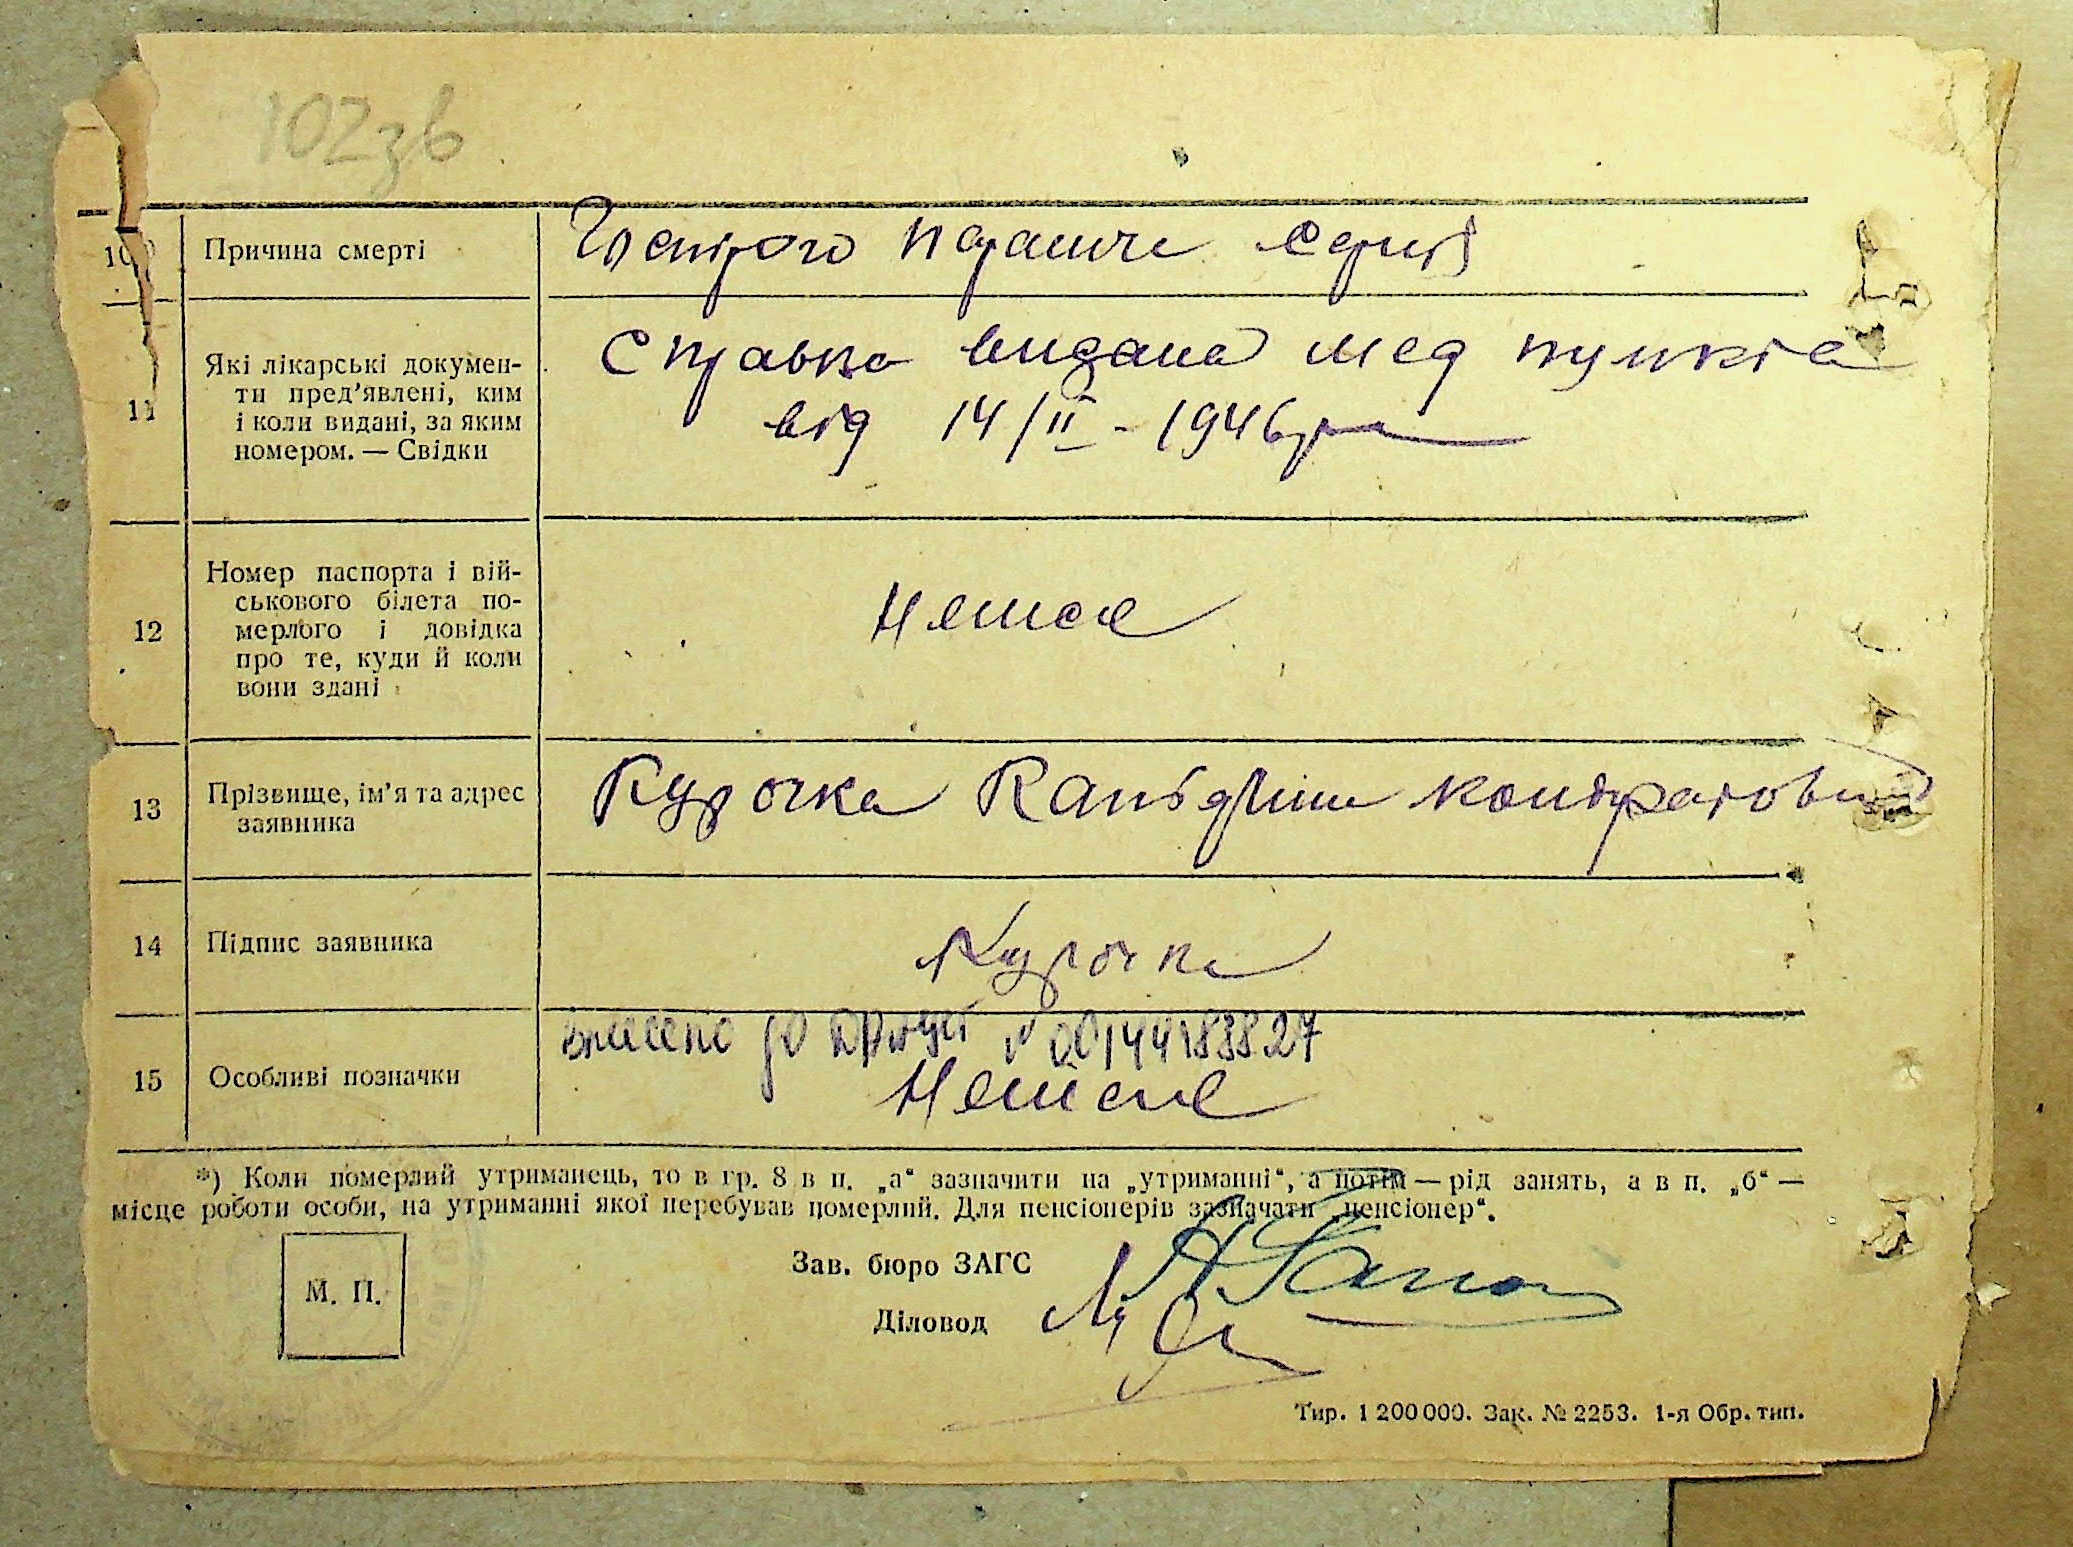 102зв
10 Причина смерті
11 Які лікарські докумен-
ти пред'явлені, ким
і коли видані, за яким
номером. — Свідки
Справка видана мед пункта
від 14/II - 1946р
12 Номер паспорта і вій-
ськового білета по-
мерлого і довідка
про те, куди й коли
вони здані
Немає
13 Прізвище, ім'я та адрес
заявника
Курочка Кондратов
14 Підпис заявника
Курочка
15 Особливі позначки
внесено до № 00144183827
Немає
*) Коли померлий утриманець, то в гр. 8 в п. „а“ зазначити на „утриманні“, а потім — рід занять, а в п. „б“ —
місце роботи особи, на утриманні якої перебував померлий. Для пенсіонерів зазначати „пенсіонер“.
М. П.
Зав. бюро ЗАГС
Діловод
Тир. 1 200 000. Зак. № 2253. 1-я Обр. тип.